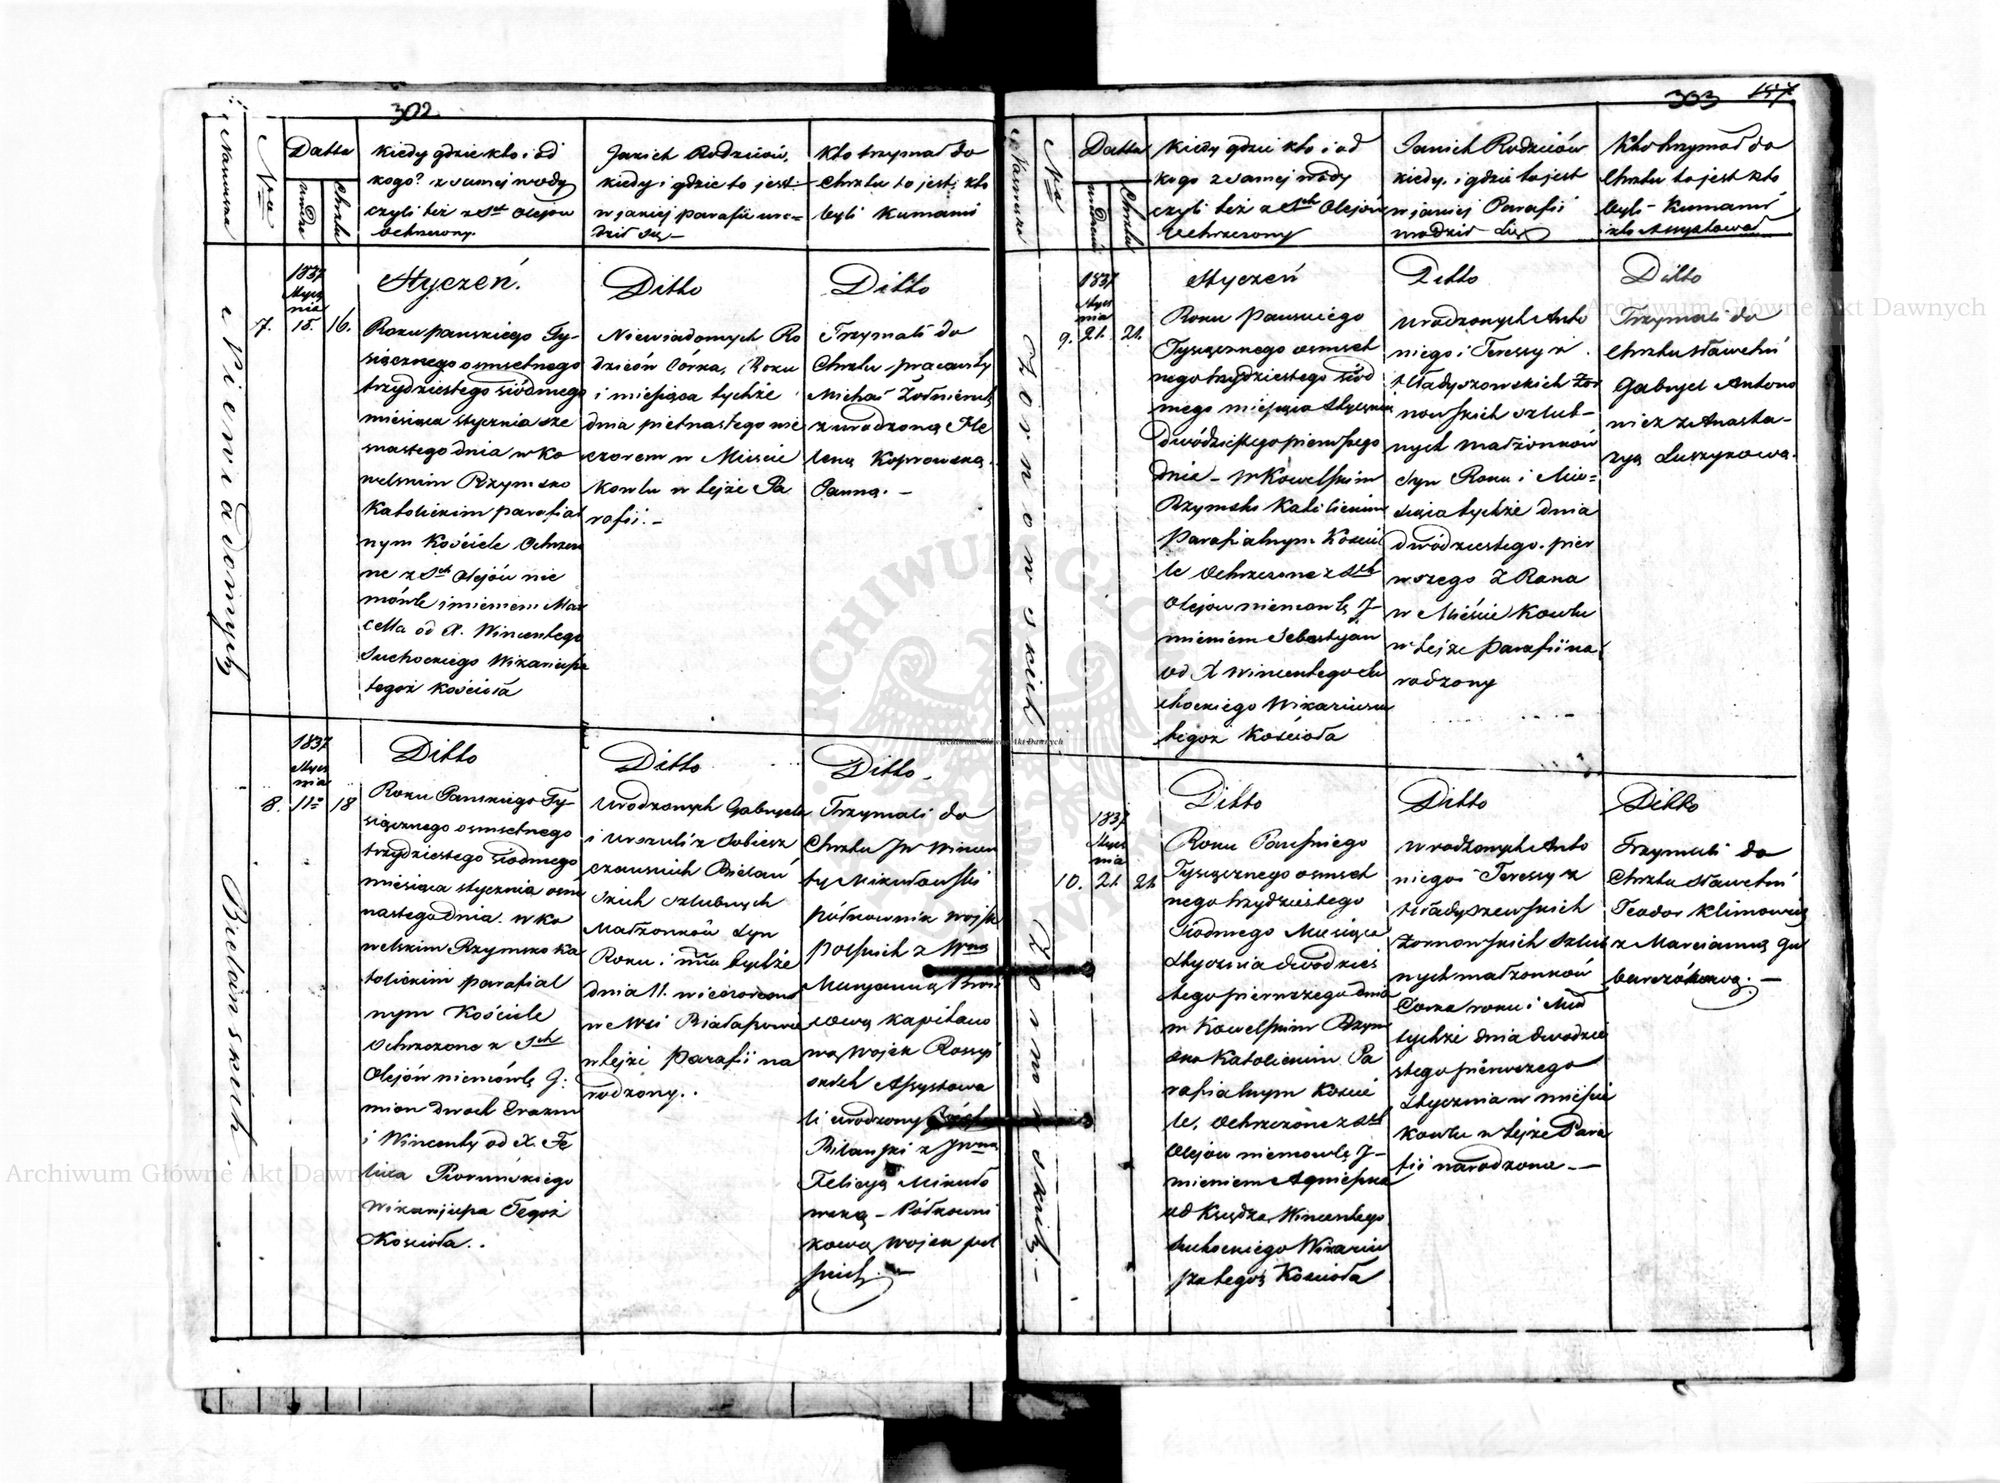 302
Nazwiska
Nro
Datta
urodz.
Chrztu
Kiedy gdzie kto i od
kogo? z samej wody
czyli też z Sch Olejów
Ochrzczony.
Jakich Rodziców,
kiedy i gdzie to jest:
w jakiej parafii uro=
dził się –
Kto trzymał do
Chrztu to jest; kto
byli Kumami
Niewiadomych
7.
1837
Stycz
nia
15.
16.
Styczeń.
Roku pańskiego Ty-
siącznego osmsetnego
trzydziestego siódmego
miesiąca stycznia sze
snastego dnia w Ko
welskim Rzymsko
Katolickim parafial
nym Kościele Ochrzczo
ne z Sch Olejów nie
mówle imieniem Mar
cella od X. Wincentego
Suchockiego Wikariusza
tegoż Kościoła
Ditto
Niewiadomych Ro
dziców Córka, Roku
i miesiąca tychże
dnia pietnastego wie
czorem w Mieście
Kowlu w tejże Pa
rafii. –
Ditto
Trzymali do
Chrztu pracowity
Michał Żołnieruk
z urodzoną He
leną Koprowską
Panną. –
Bielańskich
8.
1837
Stycz
nia
11=
18
Ditto
Roku Pańskiego Ty-
siącznego osmsetnego
trzydziestego siodmego
miesiąca stycznia osm
nastego dnia w Ko
welskim Rzymsko Ka
tolickim parafial
nym Kościele
Ochrzczono z Sch
Olejów niemówlę J:
mion dwoch Erazm
i Wincenty od X. Fe
lixa Piorunskiego
Wikariusza Tegoż
Kościoła..
Ditto
Urodzonych Gabryela
i Urszuli z Sobiesz
czańskich Bielań
skich szlubnych
Małżonków Syn
Roku i mca tychże
dnia 11. wieczorem
we Wsi Białaszowie
w tejże parafii na
rodzony..
Ditto
Trzymali do
Chrztu JW Wincen
ty Mikułowski
półkownik wojsk
polskich z Wną
Maryanną
kapitano
wą wojsk Rossyi
skich Assystowa
li urodzony
Bilański z JWną
Felicyą Mikuło
wską – Półkowni
kową wojsk pol
skich. –
303
157
Nazwiska
Nro
Datta
urodzin
Chrztu
Kiedy gdzie kto i od
kogo z samej wody
czyli też z Sch Olejów
Ochrzczony
Jakich Rodziców
kiedy, i gdzie to jest
w jakiej Parafii
urodził się
Kto trzymał do
Chrztu to jest kto
byli – Kumami
i kto Assystował
Żornowskich
9.
1837
Stycz
nia
21.
21.
Styczeń
Roku Pańskiego
Tysiącznego osmset
nego trzydziestego siód
mego miesiąca stycznia
dwódziestego pierwszego
dnia – w Kowelskim
Rzymsko Katolickim
Parafialnym Koście
le Ochrzczono z Sch
Olejów niemowlę J
mieniem Sebastyan
od X Wincentego Su
chockiego Wikariusza
tegoż Kościoła
Ditto
Urodzonych Anto
niego i Teressy z
Władyszowskich Żor
nowskich szlub-
nych małżonków
Syn Roku i Mie=
siąca tychże dnia
dwódziestego pier
wszego z Rana
w Mieście Kowlu
w tejże parafii na
rodzony
Ditto
Trzymali do
Chrztu sławetni
Gabryel Antono
wicz z Anasta-
zyą Łuszykową.
Żornowskich –
10.
1837
Stycz
nia
21
21.
Ditto
Roku Pańskiego
Tysiącznego osmset
nego trzydziestego
Siódmego Miesiąca
Stycznia dwodzies
tego pierwszego dnia
w Kowelskim Rzym
sko Katolickim Pa
rafialnym Kościе
le, Ochrzczono z Sch
Olejów niemowlę J-
mieniem Agnieszka
od Księdza Wincentego
Suchockiego Wikariu
sza tegoż Kościoła
Ditto
Urodzonych Anto
niego i Teressy z
Władyszewskich
Żornowskich szlub
nych małżonków
Corka roku i Mca
tychże dnia dwodzie
stego pierwszego
Stycznia w mieście
Kowlu w tejże Para
fii narodzona. –
Ditto
Trzymali do
Chrztu sławetni
Teodor Klimowicz
z Marcianną Gu
barczukową. –
Archiwum Główne Akt Dawnych
Archiwum Główne Akt Dawnych
Archiwum Główne Akt Dawnych